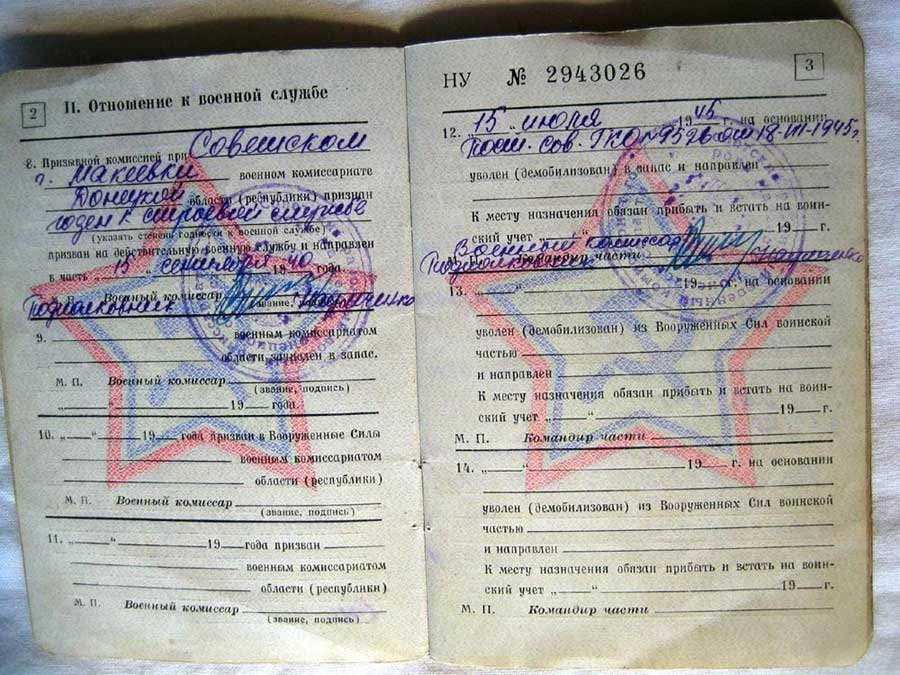 2
II. Отношение к военной службе
8. Призывной комиссией при Советском
г. Макеевки военном комиссариате
Донецкой области (республики) признан
годен к строевой службе
(указать степень годности к военной службе)
призван на действительную военную службу и направлен
в часть „15" сентября 1940 года.
М. П. Военный комиссар
Подполковник
(звание, подпись)
9. военным комиссариатом
области зачислен в запас.
М. П. Военный комиссар
(звание, подпись)
„ " 19 года.
10. „ " 19 года призван в Вооруженные Силы
военным комиссариатом
области (республики)
М. П. Военный комиссар
(звание, подпись)
11. „ " 19 года призван
военным комиссариатом
области (республики)
М. П. Военный комиссар
(звание, подпись)
3
НУ № 2943026
12. „15" июля 1945 г. на основании
Пост. сов. ГКО № 9526 от 18-III-1945г
уволен (демобилизован) в запас и направлен
К месту назначения обязан прибыть и встать на воин-
ский учет „ " 19 г.
Военный комиссар
М. П. Командир части
Подполковник
13. „ " 19 г. на основании
уволен (демобилизован) из Вооруженных Сил воинской
частью
и направлен
К месту назначения обязан прибыть и встать на воин-
ский учет „ " 19 г.
М. П. Командир части
14. „ " 19 г. на основании
уволен (демобилизован) из Вооруженных Сил воинской
частью
и направлен
К месту назначения обязан прибыть и встать на воин-
ский учет „ " 19 г.
М. П. Командир части